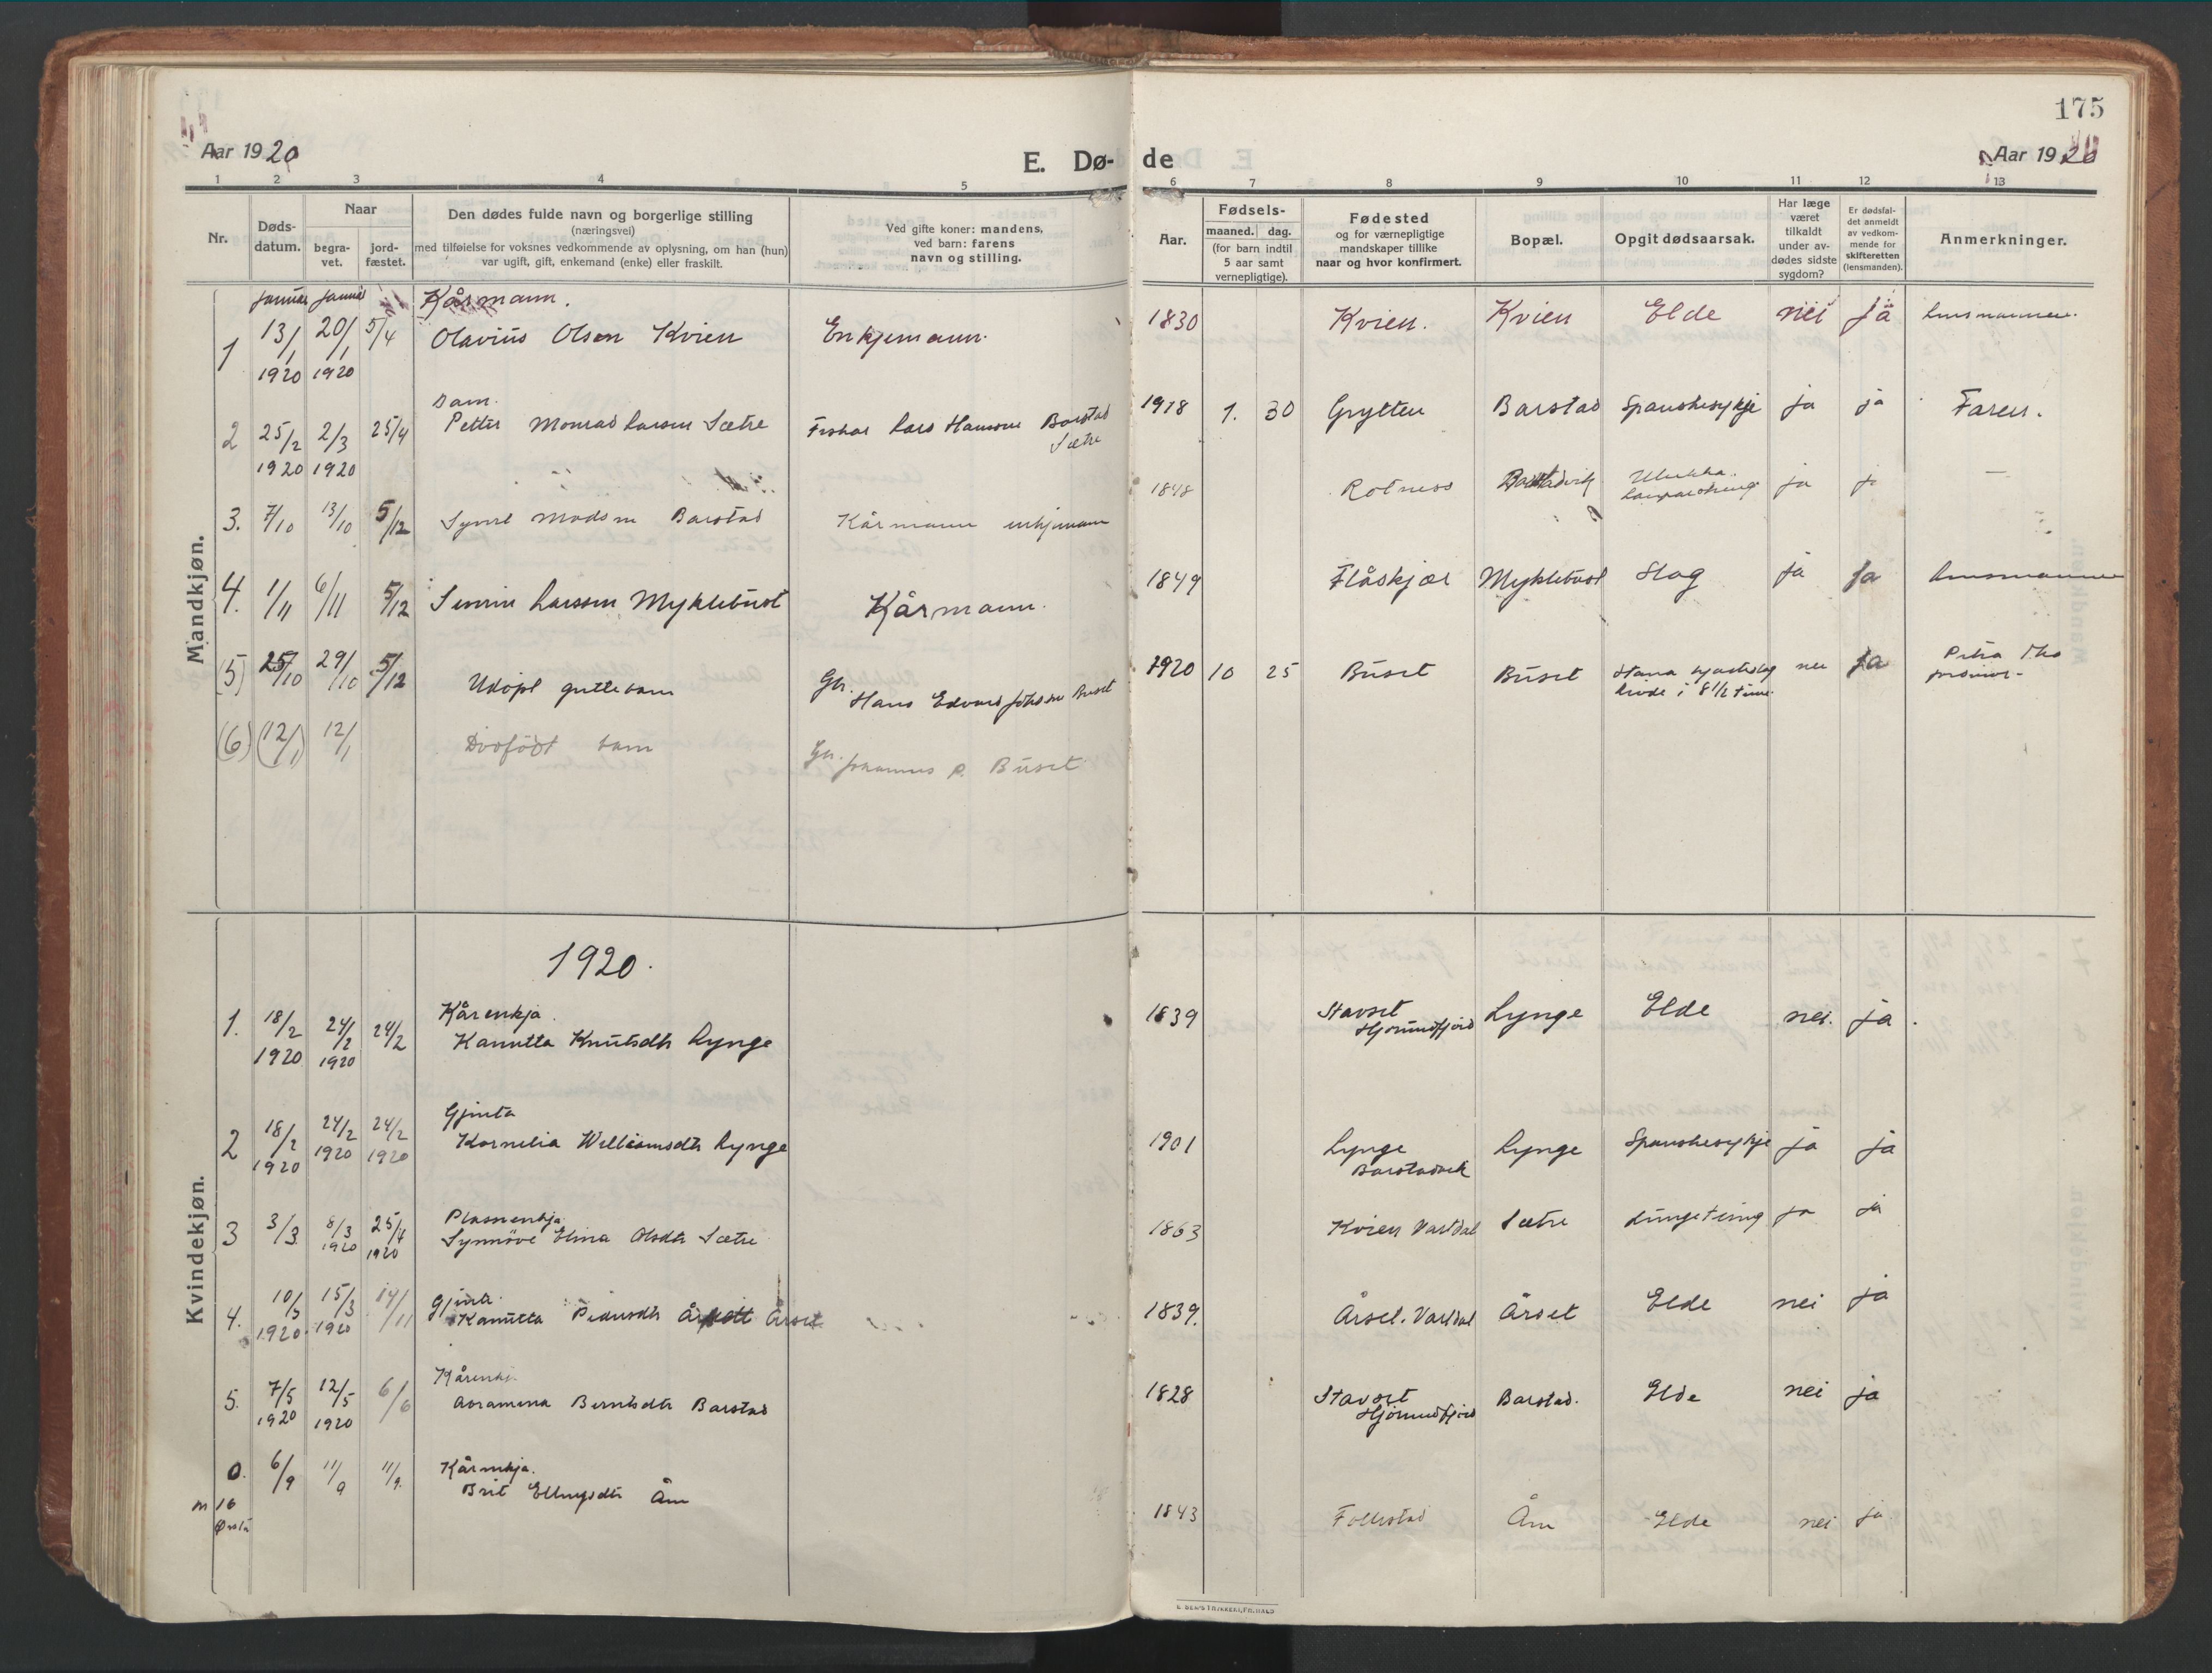 175
Aar 1920
E. Dø-
de
Aar 1920
1 2 3 4 5 6 7 8 9 10 11 12 13
Nr.
Døds-
datum.
Naar
begra-
vet.
jord-
fæstet.
Den dødes fulde navn og borgerlige stilling
(næringsvei)
med tilføielse for voksnes vedkommende av oplysning, om han (hun)
var ugift, gift, enkemand (enke) eller fraskilt.
Ved gifte koner: mandens,
ved barn: farens
navn og stilling.
Aar.
Fødsels-
maaned. dag.
(for barn indtil
5 aar samt
vernepligtige).
Fødested
og for værnepligtige
mandskaper tillike
naar og hvor konfirmert.
Bopæl.
Opgit dødsaarsak.
Har læge
været
tilkaldt
under av-
dødes sidste
sygdom?
Er dødsfal-
det anmeldt
av vedkom-
mende for
skifteretten
(lensmanden).
Anmerkninger.
Mandkjøn.
januar januar Kårmann.
1 13/1 20/1 5/4 Olavius Olsen Kvien Enkjemann. 1830 Kvien. Kvien Elde nei ja
1920 1920
Barn.
2 25/2 2/3 25/4 Petter Monrad Larsen Sætre Fiskar Lars Hansen Barstad 1918 1. 30 Grytten Barstad Spanskesykje ja ja Faren.
Sætre
1920 1920
3. 7/10 13/10 5/12 Madsen Barstad Kårmann enkjemann 1848 Rotness Barstadvik ja
4. 1/11 6/11 5/12 Larssen Myklebust Kårmann. 1849 Flåskjær Myklebust Slag ja ja
(5) 25/10 29/10 5/12 Udøpt guttebarn Gbr. 1920 10 25 Buset Buset nei ja Petra
Hans Edvard Buset
levde i 8 1/2 time
(6) (12/1) 12/1 Dødfødt barn Gbr. P. Buset
Kvindekjøn.
1920.
Kårenkja.
1. 18/2 24/2 24/2 Kanutta Knutsdtr Lynge 1839 Stavset Lynge Elde nei. ja.
Hjørundfjord
1920 1920
Gjenta
2 18/2 24/2 24/2 Kornelia Williamsdtr Lynge 1901 Lynge Lynge Spanskesykje ja ja
Barstadvik
1920 1920 1920
Plassenkja
3 3/3 8/3 25/4 Synnöve Elina Olsdtr Sætre 1863 Kvien Vartdal Sætre Lungetæring ja ja
1920 1920
Gjenta.
4. 10/3 15/3 14/11 Kanutta Pedersdtr Årset 1839. Årset. Vartdal Årset Elde nei ja
1920. 1920
Kårenkj.
5. 7/5 12/5 6/6 Berntsdtr Barstad 1828 Stavset Barstad. Elde nei ja
Hjørundfjord
1920 1920
Kårenkja.
0. 6/9 11/9 11/9. Brit Ellingsdtr Åm 1843 Follestad Åm Elde nei ja
n 16
Ørsta